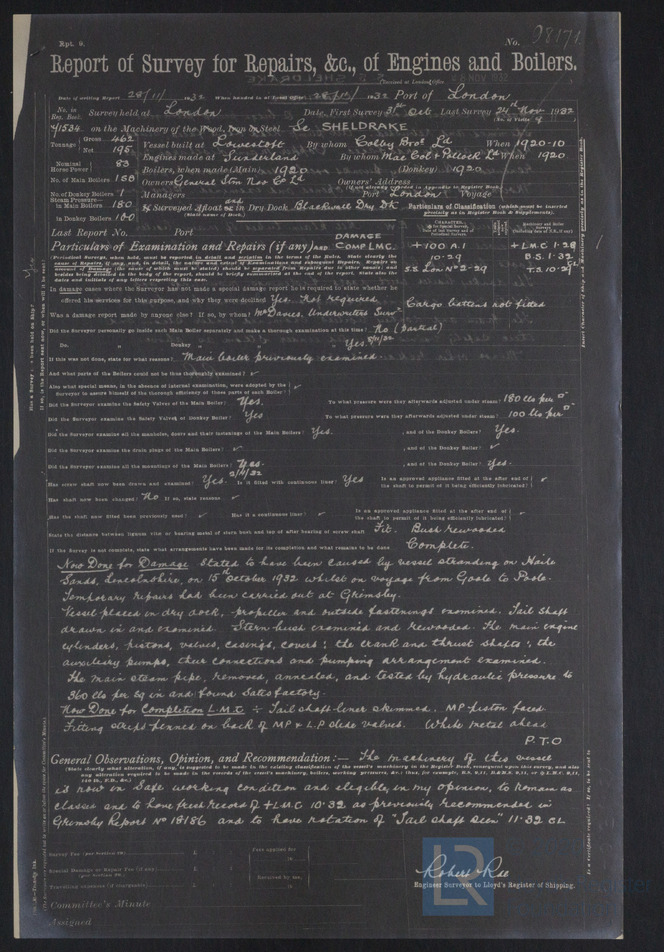 Rpt. 9.
No. 98171
Report of Survey for Repairs, &c., of Engines and Boilers.
8 NOV 1932
Date of writing Report 28/11/ 1932 When handed in at Local Office 28/11/ 1932 Port of London
No. in Reg. Book. Survey held at London Date, First Survey 31st Oct Last Survey 24th Nov 1932
41534 on the Machinery of the Wood, Iron or Steel Sc SHELDRAKE
Tonnage Gross 462 Vessel built at Lowestoft By whom Colby Bros Ld When 1920-10
Net 195 Engines made at Sunderland By whom Mac Col & Pollock Ld When 1920
Nominal Horse Power 83 Boilers, when made (Main) 1920 (Donkey) 1920
No. of Main Boilers 1SB Owners General Stm Nav Co Ld Owners' Address
No. of Donkey Boilers 1 Managers Port London Voyage
Steam Pressure in Main Boilers 180 If Surveyed Afloat or in Dry Dock Blackwall Dry Dk
in Donkey Boilers 100 Particulars of Classification
Last Report No. Port
Particulars of Examination and Repairs (if any) DAMAGE AND COMP L.M.C.
+100 A.1 +L.M.C 1.28
10.29 B.S. 1.32
S.S. Lon No 2-29 T.S. 10.29
In damage cases where the Surveyor has not made a special damage report he is required to state whether he
offered his services for this purpose, and why they were declined Yes. Not required. Cargo battens not fitted
Was a damage report made by anyone else? If so, by whom? Mr Davies. Underwriters Surv
Did the Surveyor personally go inside each Main Boiler separately and make a thorough examination at this time? No (Partial)
Do. „ Donkey „ Yes
If this was not done, state for what reasons? Main boiler previously examined
And what parts of the Boilers could not be thus thoroughly examined?
Also what special means, in the absence of internal examination, were adopted by the
Surveyor to assure himself of the thorough efficiency of those parts of each Boiler?
Did the Surveyor examine the Safety Valves of the Main Boiler? Yes. To what pressure were they afterwards adjusted under steam? 180 lbs per □"
Did the Surveyor examine the Safety Valves of Donkey Boiler? Yes To what pressure were they afterwards adjusted under steam? 100 lbs per □"
Did the Surveyor examine all the manholes, doors and their fastenings of the Main Boilers? Yes. , and of the Donkey Boiler? Yes.
Did the Surveyor examine the drain plugs of the Main Boilers? , and of the Donkey Boiler?
Did the Surveyor examine all the mountings of the Main Boilers? Yes. , and of the Donkey Boiler? Yes.
Has screw shaft now been drawn and examined? Yes Is it fitted with continuous liner? Yes Is an approved appliance fitted at the after end of
the shaft to permit of it being efficiently lubricated?
Has shaft now been changed? No If so, state reasons
Has the shaft now fitted been previously used? Has it a continuous liner? Is an approved appliance fitted at the after end of
the shaft to permit of it being efficiently lubricated?
State the distance between lignum vitæ or bearing metal of stern bush and top of after bearing of screw shaft Fit. Bush rewooded
If the Survey is not complete, state what arrangements have been made for its completion and what remains to be done Complete.
Now Done for Damage stated to have been caused by vessel stranding on Haile
Sands, Lincolnshire, on 15th October 1932 whilst on voyage from Goole to Poole.
Temporary repairs had been carried out at Grimsby.
Vessel placed in dry dock, propeller and outside fastenings examined. Tail shaft
drawn in and examined. Stern bush examined and rewooded. The main engine
cylinders, pistons, valves, casings, covers; the crank and thrust shafts; the
auxiliary pumps, their connections and pumping arrangement examined.
The main steam pipe, removed, annealed, and tested by hydraulic pressure to
360 lbs per sq in and found satisfactory.
Now Done for Completion L.M.C ÷ Tail shaft liner skimmed. MP piston faced
Fitting strips pinned on back of MP & L.P slide valves. White metal ahead
P.T.O
General Observations, Opinion, and Recommendation:— The machinery of this vessel
is now in safe working condition and eligible, in my opinion, to remain as
classed and to have fresh record of +LMC 10.32 as previously recommended in
Grimsby Report No 18186 and to have notation of "Tail shaft seen" 11.32 CL
Survey Fee £
Special Damage or Repair Fee (if any) £
Travelling expenses (if chargeable) £
Fees applied for
Received by me,
Robert Rae
Engineer Surveyor to Lloyd's Register of Shipping.
Committee's Minute
Assigned
LR